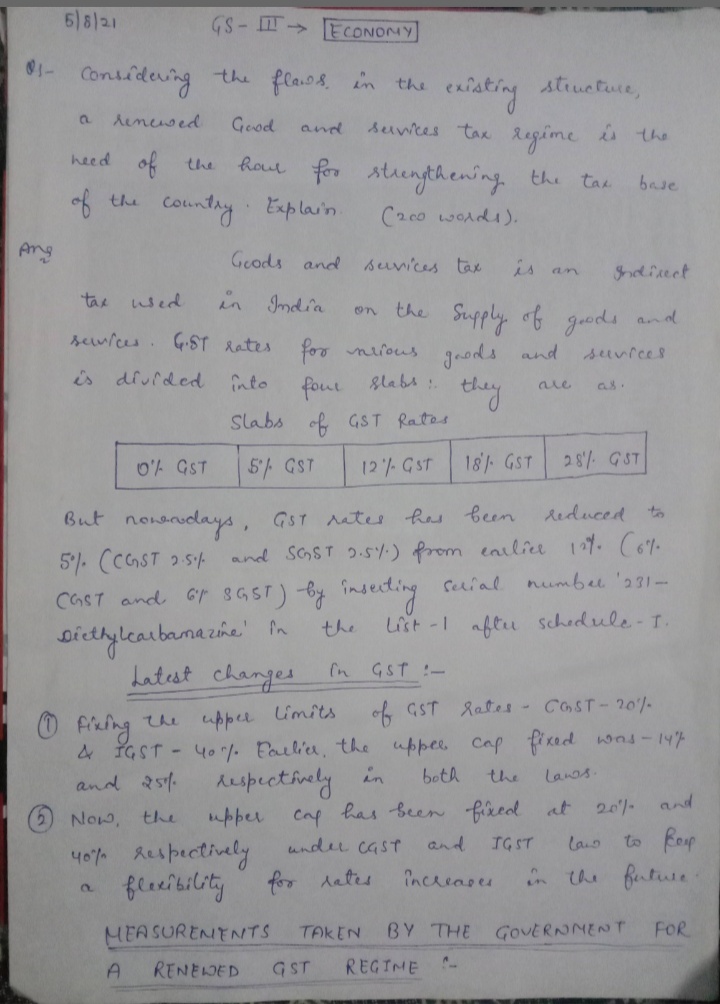 5/8/21 GS - III → ECONOMY
Q1- Considering the flaws in the existing structure,
a renewed Good and services tax regime is the
need of the hour for strengthening the tax base
of the country. Explain. (200 words).
Ans Goods and services tax is an Indirect
tax used in India on the Supply of goods and
services. G.ST rates for various goods and services
is divided into four slabs: they are as.
Slabs of GST Rates
0% GST 5% GST 12% GST 18% GST 28% GST
But nowadays, GST rates has been reduced to
5% (CGST 2.5% and SGST 2.5%) from earlier 12% (6%
CGST and 6% SGST) by inserting serial number '231-
Diethylcarbamazine' in the List-1 after schedule-I.
Latest changes in GST :-
① Fixing the upper limits of GST rates - CGST-20%
& IGST - 40% Earlier, the upper cap fixed was-14%
and 25% respectively in both the laws.
② Now, the upper cap has been fixed at 20% and
40% respectively under CGST and IGST law to keep
a flexibility for rates increases in the future.
MEASUREMENTS TAKEN BY THE GOVERNMENT FOR
A RENEWED GST REGIME :-